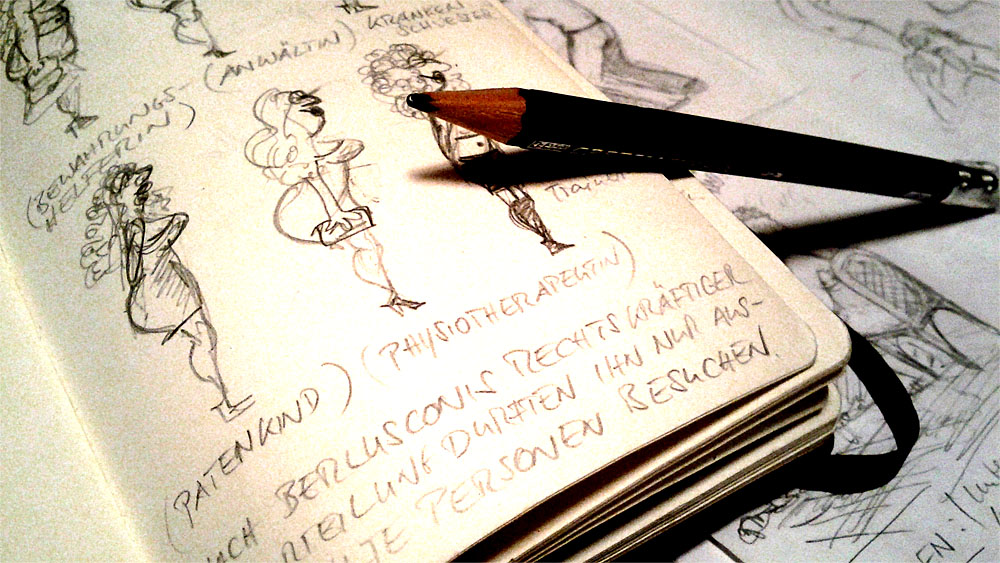 (BEWÄHRUNGS-
HELFERIN)
(ANWÄLTIN)
KRANKEN
SCHWESTER
(PATENKIND)
(PHYSIOTHERAPEUTIN)
NACH BERLUSCONIS RECHTSKRÄFTIGER
RTEILUNG DURFTEN IHN NUR AUS-
LTE PERSONEN BESUCHEN.